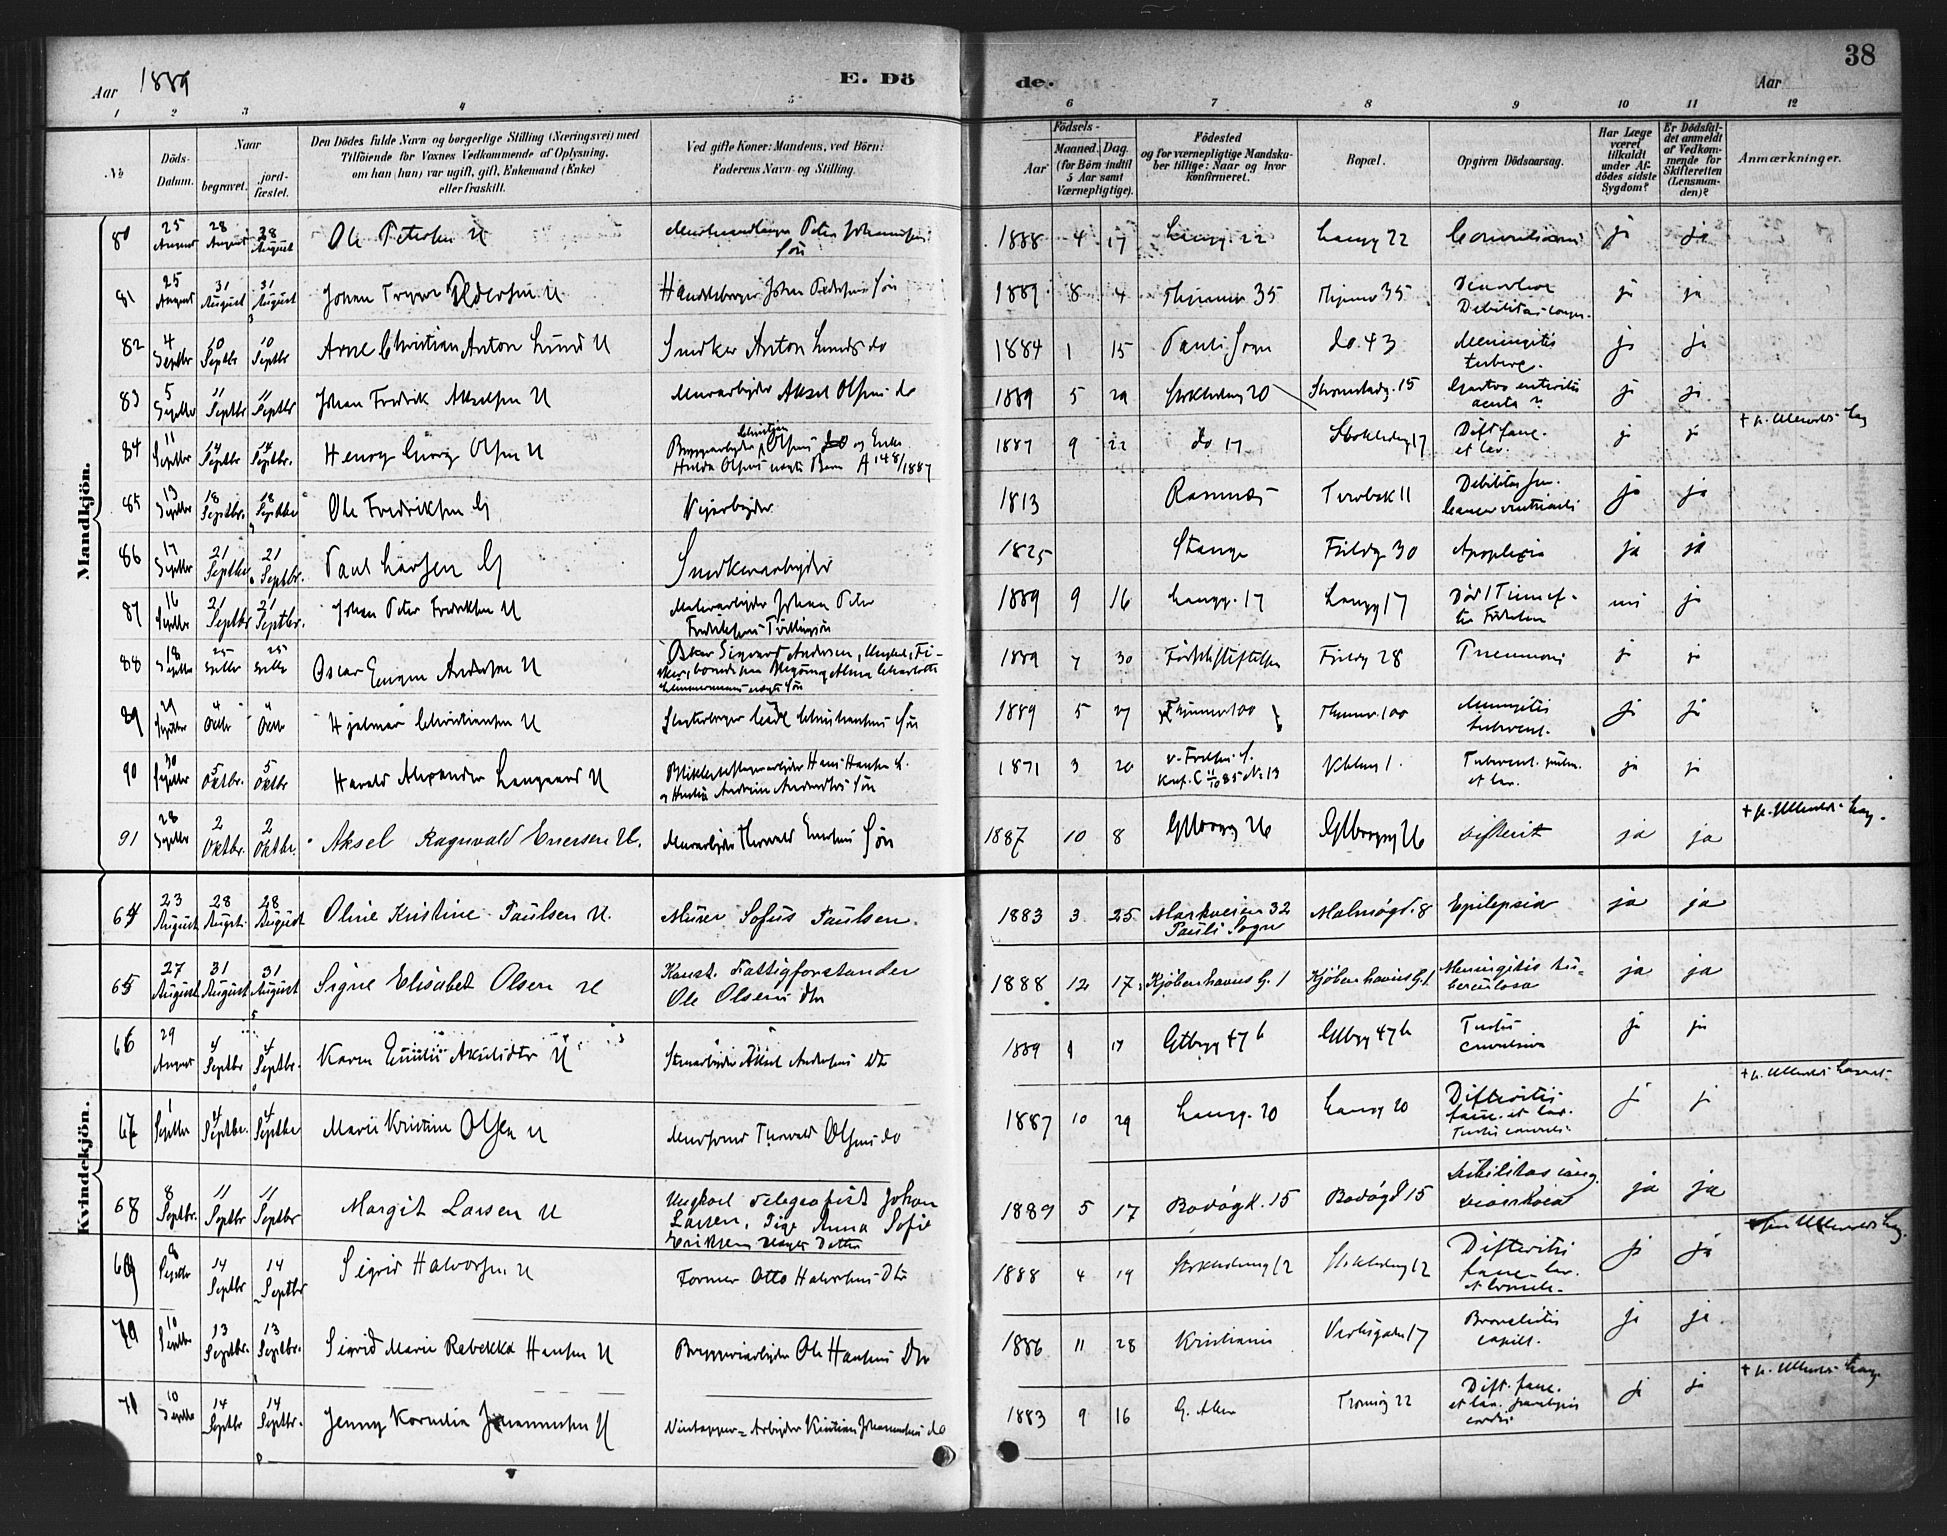 38
Aar 1889 E. Döde. Aar
1 2 3 4 5 6 7 8 9 10 11 12
No
Döds-Datum.
Naar begravet. jordfæstet.
Den Dödes fulde Navn og borgerlige Stilling (Næringsvei) med Tilföiende for Voxnes Vedkommende af Oplysning, om han (hun) var ugift, gift, Enkemand (Enke) eller fraskilt.
Ved gifte Koner: Mandens, ved Börn: Faderens Navn og Stilling.
Födsels- Aar Maaned. Dag. (for Börn indtil 5 Aar samt Værnepligtige).
Födested og for værnepligtige Mandskaber tillige: Naar og hvor konfirmeret.
Bopæl.
Opgiven Dödsaarsag.
Har Læge været tilkaldt under Afdödes sidste Sygdom?
Er Dödsfaldet anmeldt af Vedkommende for Skifteretten (Lensmanden)?
Anmærkninger.
Mandkjön.
80 25 August 28 August 28 August Ole Petersen U Peter Johannesens Sön 1888 4 17 Langg. 22 Langg 22 Convulsions ja ja
81 25 August 31 August 31 August Johan Trygve Pedersen U Handelsborger Johan Pedersens Sön 1889 8 4 35 35 Debilitas cong. ja ja
82 4 Septbr 10 Septbr 10 Septbr Arne Christian Anton Lund U Snedker Anton Lunds do 1884 1 15 Pauli Sogn do. 43 Meningitis tuberc. ja ja
83 5 Septbr 11 Septbr 11 Septbr Johan Fredrik Akselsen U Murarbejder Aksel Olsens do 1889 5 29 Stokholmg 20 Strömstadg. 15 Gastro enteritis acuta ja ja
84 11 Septbr 14 Septbr 14 Septbr. Henry Georg Olsen U Bryggearbejder Christian Olsens og Enke Hulda Olsens uægte Barn A 148/1887 1887 9 22 do 17 Stokholmg 17 Dift. fauc. et lar. ja ja
85 13 Septbr 18 Septbr. 18 Septbr Ole Fredriksen G Vejarbejder 1813 Ramnæs 11 Debilitas sen. Cancer ventriculi ja ja
86 17 Septbr 21 Septbr 21 Septbr. Paul Larsen G Snedkerarbejder 1825 Stange 30 Apoplexia ja ja
87 16 Septbr 21 Septbr 21 Septbr. Johan Peter Fredriksen U Malerarbejder Johan Peter Fredriksens Tvillingsön 1889 9 16 Langg. 17 Langg 17 Död 1 Time efter Födselen nei ja
88 18 Septbr 25 Septbr 25 Septbr Oscar Eugen Andersen U Oskar Sigvard Andersen, Ungkarl, Alma Charlotte uægte Sön 1889 7 30 Födselsstiftelsen 28 Pneumoni ja ja
89 29 Septbr 4 Octbr 4 Octbr Hjalmar Christiansen U Slagterborger Carl Christiansens Sön 1889 5 27 100 100 Meningitis tubercul. ja ja
90 30 Septbr 5 Oktbr. 5 Oktbr Harald Alexander Langaard U Hans Hansen Sön 1871 3 20 Konf. 11/10 85 No 13 1. Tubercul. pulm. et lar. ja ja
91 28 Septbr 2 Oktbr. 2 Oktbr. Aksel Ragnvald Eversen U. Murarbejder Thorvald Eversens Sön 1887 10 8 26 26 difterit ja ja
Kvindekjön.
64 23 August 28 Augst. 28 August Oline Kristine Paulsen U. Murer Sofus Paulsen. 1883 3 25 Markveien 32 Pauli Sogn Malmögd. 8 Epilepsia ja ja
65 27 August 31 August 31 August Signe Elisabet Olsen U Konst. Fattigforstander Ole Olsens dtr 1888 12 17 Kjöbenhavns G. 1 Kjöbenhavns G. 1 Meningitis tuberculosa ja ja
66 29 August 4 Septbr 4 Septbr. Karen Emilie Akselsdtr U Stenarbejder Aksel Andersens Dtr 1889 17 47 b 47 b Tussis convulsiva ja ja
67 1 Septbr 4 Septbr. 4 Septbr Marie Kristine Olsen U Thorvald Olsens do 1887 10 29 Langg. 20 Langg 20 Difteritis fauc. et lar. Tussis convuls. ja ja
68 8 Septbr. 11 Septbr 11 Septbr Margit Larsen U Ungkarl Telegrafist Johan Larsen, Pige Anna Sofie Eriksen uægte Datter 1889 5 17 Bodögd. 15 Bodögd 15 Debilitas cong. diarrhoea ja ja
69 8 Septbr 14 Septbr 14 Septbr Sigrid Halvorsen U Former Otto Halvorsens Dtr 1888 4 19 Stokholmg 12 Stokholmg 12 Difteritis fauc. lar. ja ja
70 10 Septbr 13 Septbr. 13 Septbr. Sigrid Marie Rebekka Hansen U Bryggeriarbejder Ole Hansens Dtr 1886 11 28 Kristiania 17 Bronchitis capill. ja ja
71 10 Septbr 14 Septbr 14 Septbr. Jenny Kornelia Johannesen U Arbejder Kristian Johannesens do 1883 9 16 G. Aker Tromsög 22 Dift. fauc. et lar. paralysis cordis ja ja